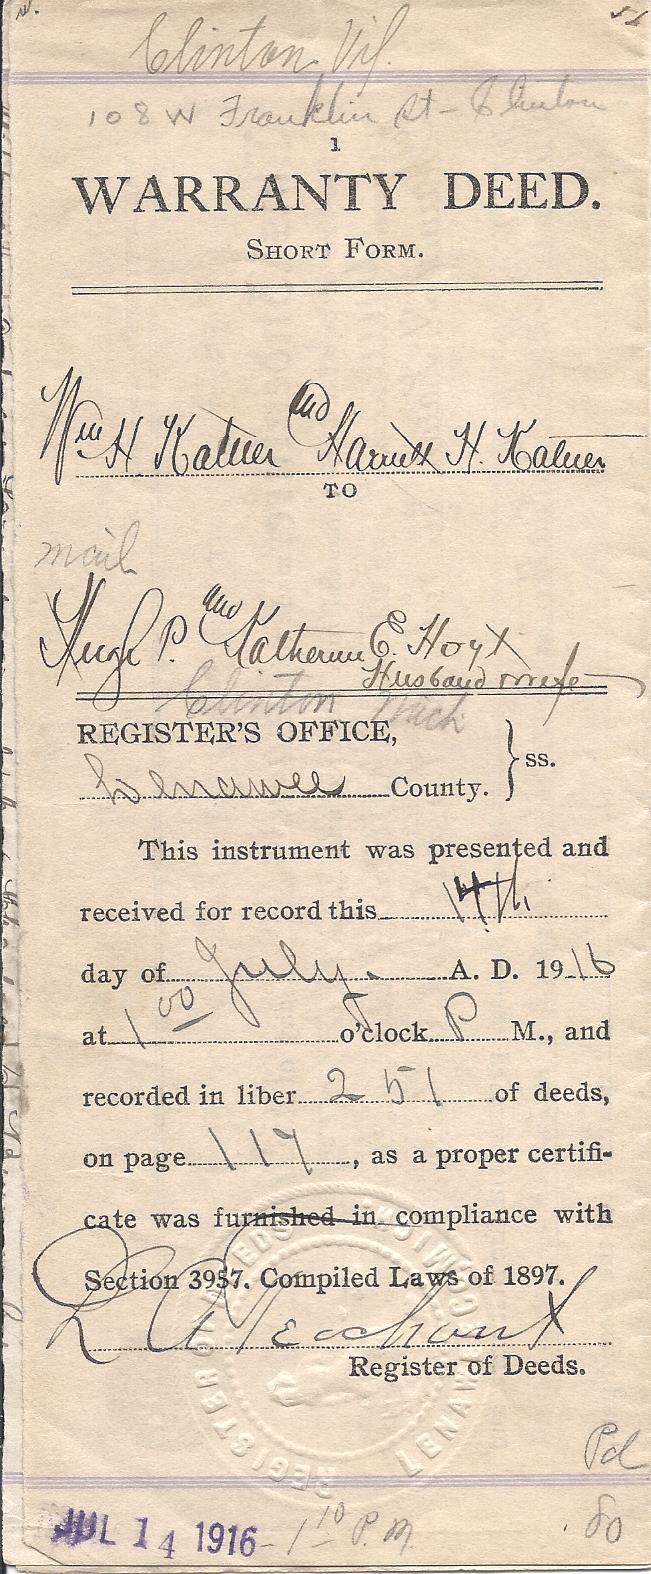 Clinton Vil.
108 W Franklin St - Clinton
1
WARRANTY DEED.
SHORT FORM.
Wm H. Katner and Harriett H. Katner
TO
mail
Hugh P. and Katherine E. Hoyt
Husband & wife
Clinton Mich
REGISTER'S OFFICE,
Lenawee County. } ss.
This instrument was presented and
received for record this 14th
day of July. A. D. 1916
at 1 00 o'clock P M., and
recorded in liber 251 of deeds,
on page 117, as a proper certifi-
cate was furnished in compliance with
Section 3957. Compiled Laws of 1897.
Register of Deeds.
REGISTER OF DEEDS LENAWEE CO. MICH
Pd
.80
JUL 14 1916 - 1 10 P.M.